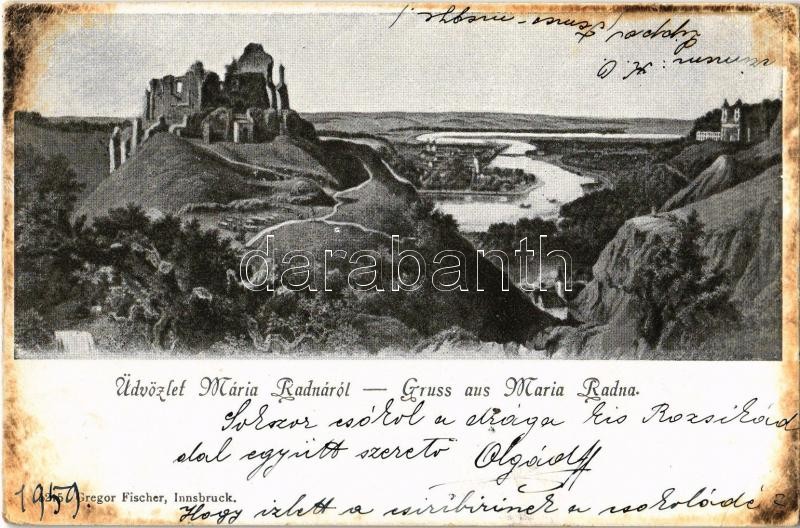 Lippa (Temes-megye)
darabanth
Üdvözlet Mária Radnáról — Gruss aus Maria Radna.
Sokszor csókol a drága kis Rozsikád
dal együtt szerető Olgád
Gregor Fischer, Innsbruck.
1959.
Hogy izlett a csiribirinek a csokoládé?